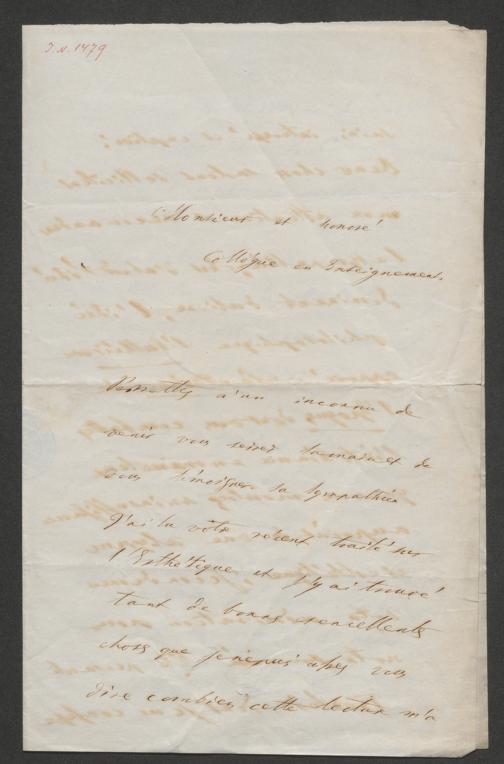 J. N. 1479
Monsieur et honoré
Collègue en Enseignement.
Permettez à un inconnu de
venir vous serrer la main et de
vous témoigner sa sympathie
J'ai lu votre récent traité sur
l'Esthétique et j'y ai trouvé
tant de bonnes et excellentes
choses que je ne puis assez vous
dire combien cette lecture m'a